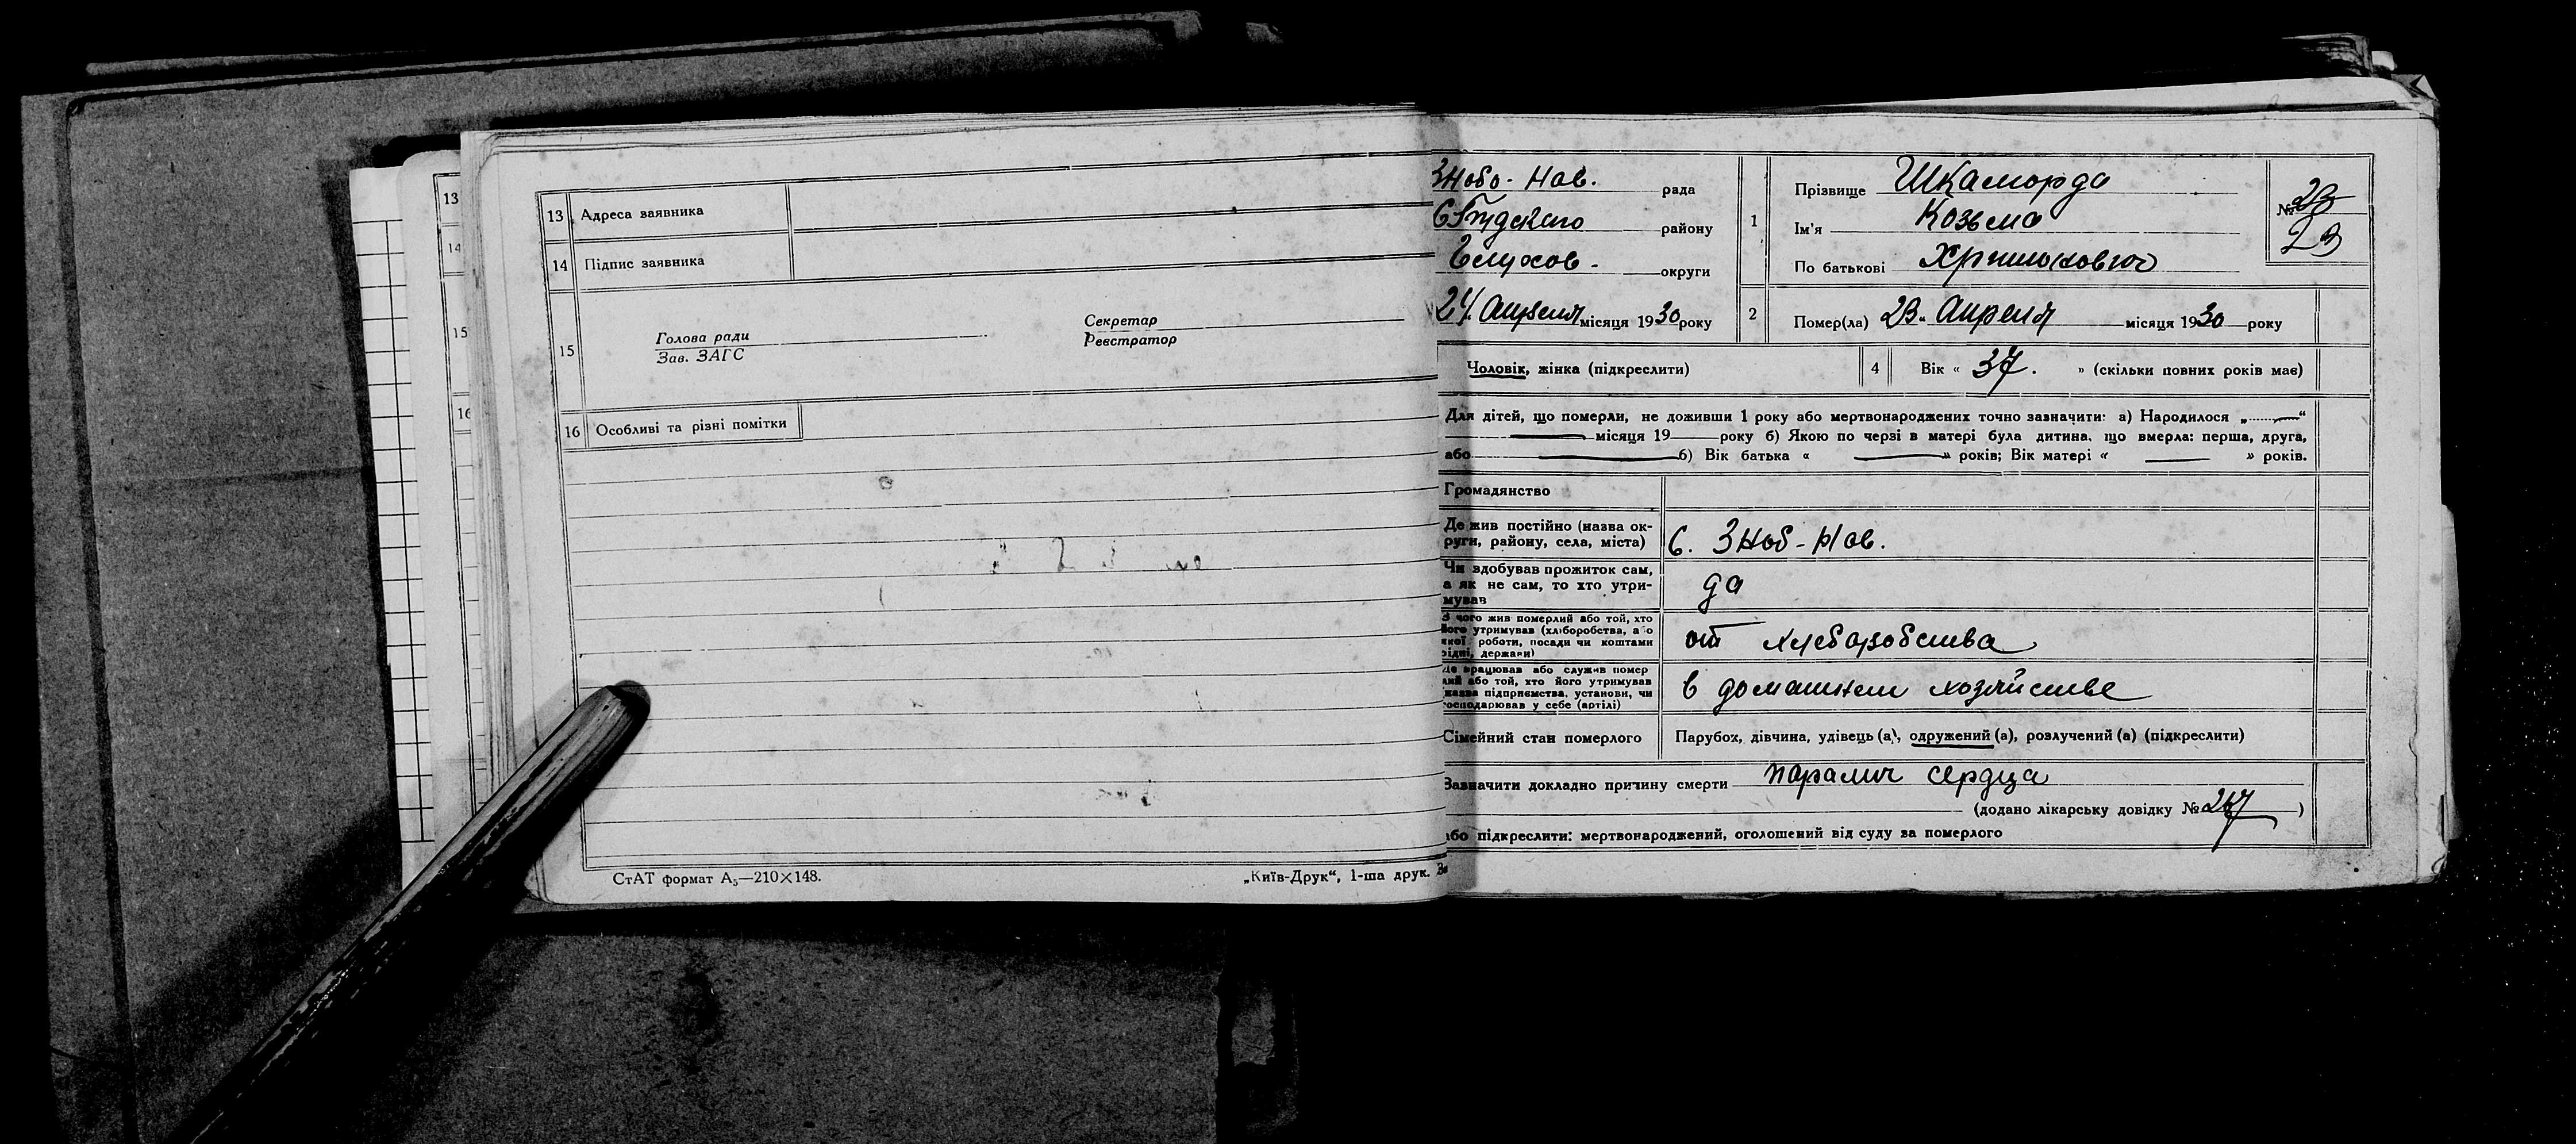 13
14
15
16
13 Адреса заявника
14 Підпис заявника
15
Голова ради
Зав. ЗАГС
Секретар
Реєстратор
16 Особливі та різні помітки
СтАТ формат А₅—210×148.
„Київ-Друк“, 1-ша друк. З
Зново-Нов. рада
району
Глухов. округи
24 Апреля місяця 1930 року
1
Прізвище Шкаморда
Ім'я Козьма
По батькові
№ 23
23
2 Помер(ла) 23 Апреля місяця 1930 року
Чоловік, жінка (підкреслити)
4 Вік « 37. » (скільки повних років має)
Для дітей, що померли, не доживши 1 року або мертвонароджених точно зазначити: а) Народилося „ — “
— місяця 19 року б) Якою по черзі в матері була дитина, що вмерла: перша, друга,
або — б) Вік батька « — » років; Вік матері « — » років.
Громадянство
Де жив постійно (назва ок-
руги, району, села, міста)
С. Зноб-Нов.
Чи здобував прожиток сам,
а як не сам, то хто утри-
мував
да
З чого жив померлий або той, хто
його утримував (хліборобства, або
якої роботи, посади чи коштами
рідні, держави)
от хлеборобства
Де працював або служив помер
лий або той, хто його утримував
назва підприємства, установи, чи
господарював у себе (артілі)
в домашнем хозяйстве
Сімейний стан померлого
Парубок, дівчина, удівець (а), одружений (а), розлучений (а) (підкреслити)
Зазначити докладно причину смерти паралич сердца
(додано лікарську довідку № 267 )
або підкреслити: мертвонароджений, оголошений від суду за померлого